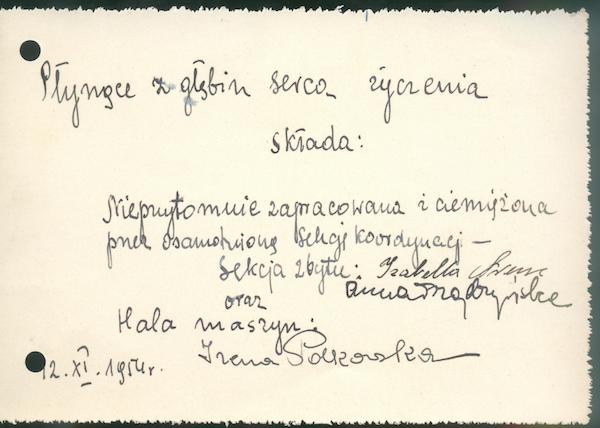 Płynące z głębin serca życzenia
składa:
Nieprzytomnie zapracowana i ciemiężona
przez osamotnioną Sekcję Koordynacji –
Sekcja zbytu: Izabella
oraz Anna
Hala maszyn:
Irena Polkowska
12.XI.1954r.